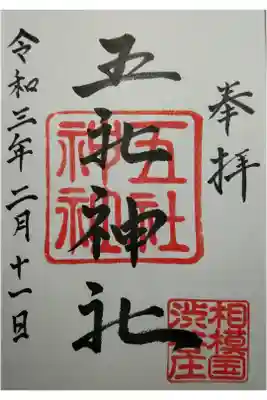 奉拝
五社神社
令和三年二月十一日
五社
神社
相模国
渋谷庄